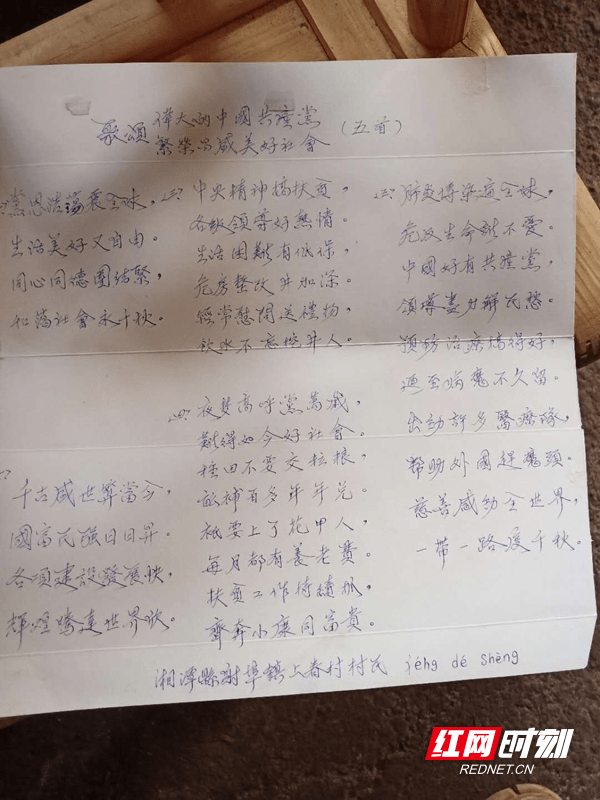 歌頌
偉大的中國共產黨
繁榮昌盛美好社會
(五首)
黨恩浩蕩震全球,
生活美好又自由。
同心同德團結緊,
和諧社會永千秋。
千古盛世算當今,
國富民強日日昇。
各項建設發展快,
輝煌騰達世界欽。
三、中央精神搞扶貧,
各級領導好熱情。
生活困難有低保,
危房整改井加深。
經常慰問送禮物,
飲水不忘挖井人。
四、高呼黨萬歲,
難得如今好社會。
種田不要交
畝補百多年年兌。
祇要上了花甲人,
每月都有養老費。
扶貧工作持續抓,
齊奔小康同富貴。
五、肺炎傳染全球,
危及生命誰不憂。
中國好有共產黨,
領導盡力解民愁。
預防治療搞得好,
病魔不久留。
出動許多醫療隊,
幫助外國趕魔頭。
慈善感動全世界,
一帶一路千秋。
湘潭縣射埠鎮上春村村民 dé shèng
红网时刻
REDNET.CN